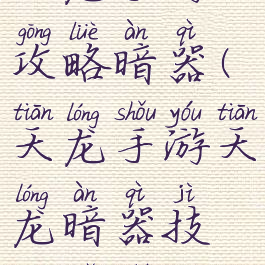 gōng lüè àn qì
攻略暗器(
tiān lóng shǒu yóu tiān
天龙手游天
lóng àn qì jì
龙暗器技